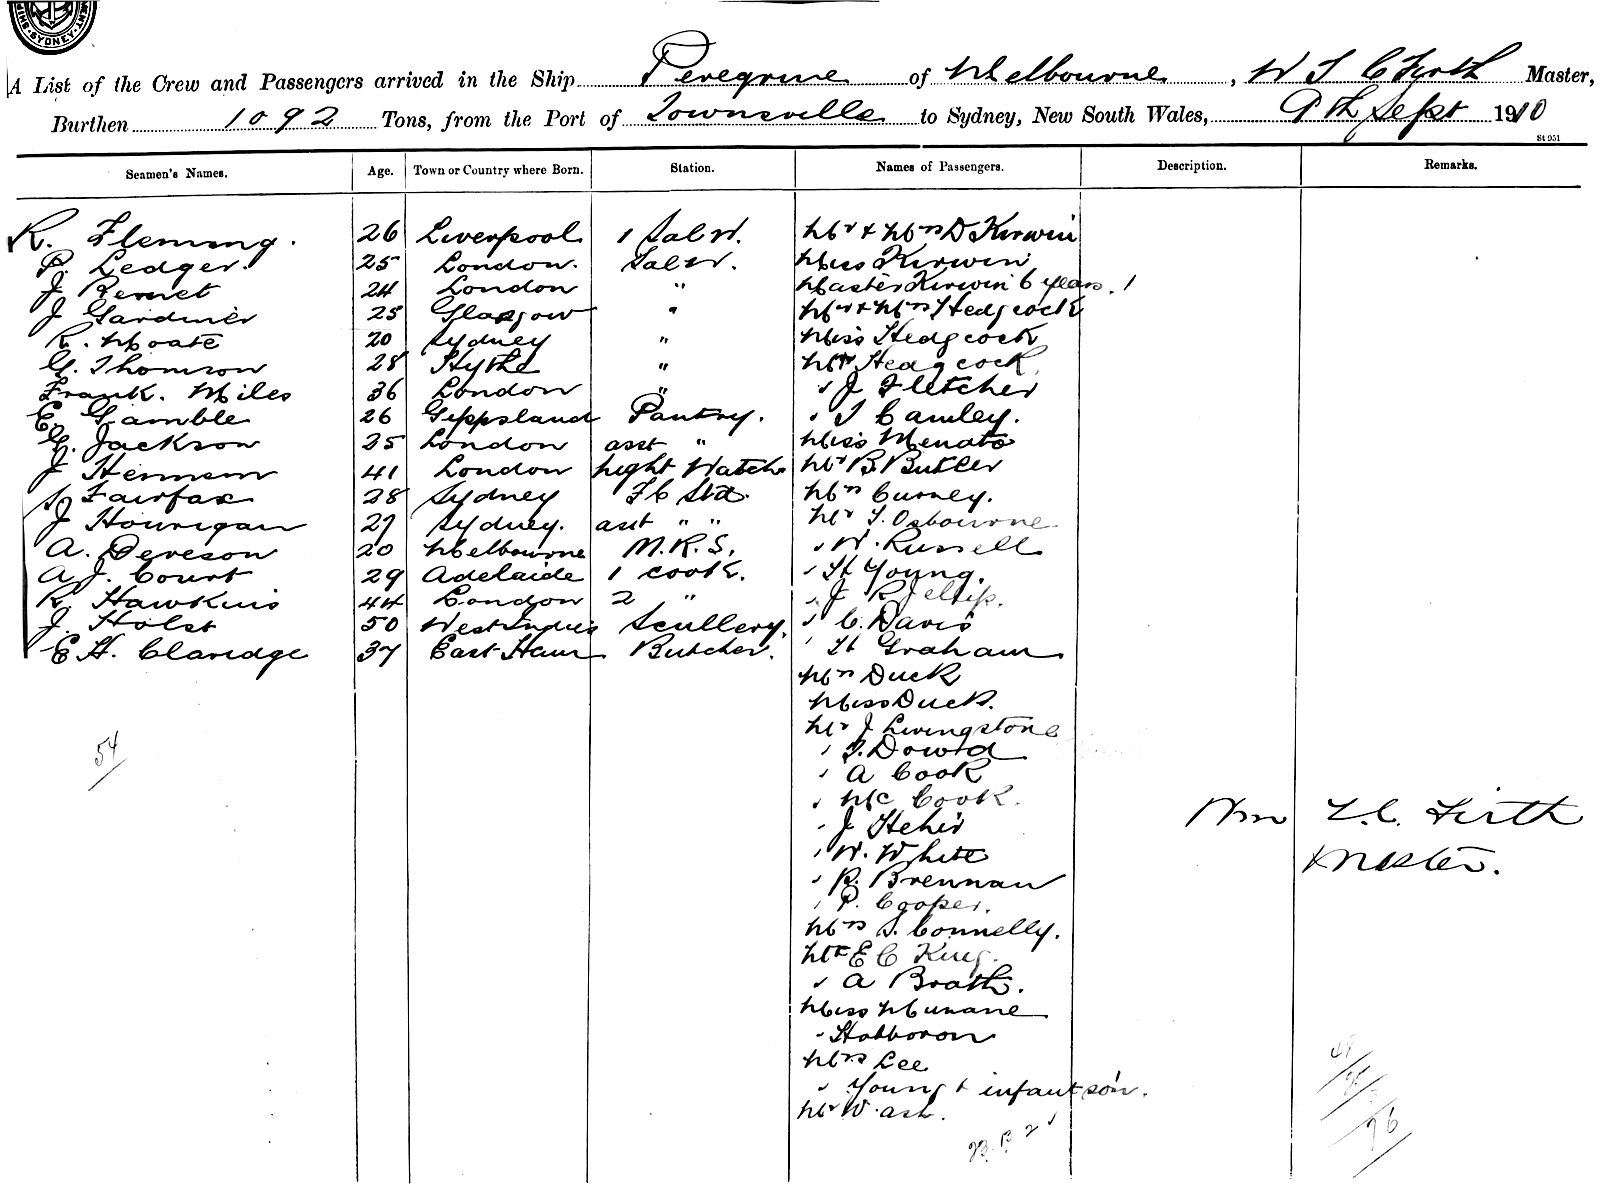 MENT. SYDNEY. SHIP
A List of the Crew and Passengers arrived in the Ship Peregrine of Melbourne, W T C Fyrth Master,
Burthen 1092 Tons, from the Port of Townsville to Sydney, New South Wales, 9th Sept 1910
St 951
Seamen's Names. Age. Town or Country where Born. Station. Names of Passengers. Description. Remarks.
R. Fleming. 26 Liverpool 1 Sal W. Mr & Mrs D Kerwin
P. Ledger. 25 London. Sal W. Miss Kerwin
J 24 London " Master Kerwin 6 years. 1
J Gardiner 25 Glasgow " Mr & Mrs Hedgcock
R. Moate 20 Sydney " Miss Hedgcock
G. Thomson 28 Hythe " Mr Hedgcock
Frank. Miles 36 London " " J Fletcher
E Gamble 26 Gippsland Pantry. " T Camley.
G. Jackson 25 London asst " Miss Menato
J Hennem 41 London Night Watch Mr B Butler
S Fairfax 28 Sydney F C Std. Mrs Curney.
J Hourigan 27 Sydney. asst " " Mr T. Osbourne
A. Deveson 20 Melbourne M.R.S. " W. Russell
A J. Court 29 Adelaide 1 cook. " H Young.
R. Hawkins 44 London 2 " " J R
J. Holst 50 West Indies Scullery. " C. Davis
E H. Claridge 37 East Ham Butcher. " H Graham
Mrs Duck
Miss Duck.
Mr J Livingstone
" J. Dowd
54 " A Cook
" Mc Cook.
" J Hehir Wm T. C. Firth
" W. White Master.
" R. Brennan
" P. Cooper.
Mrs S. Connelly.
Mr E C King.
" A Brath.
Miss Munane
" Holboron
Mrs Lee
" Young & infant son.
Mr W. Ash.
96